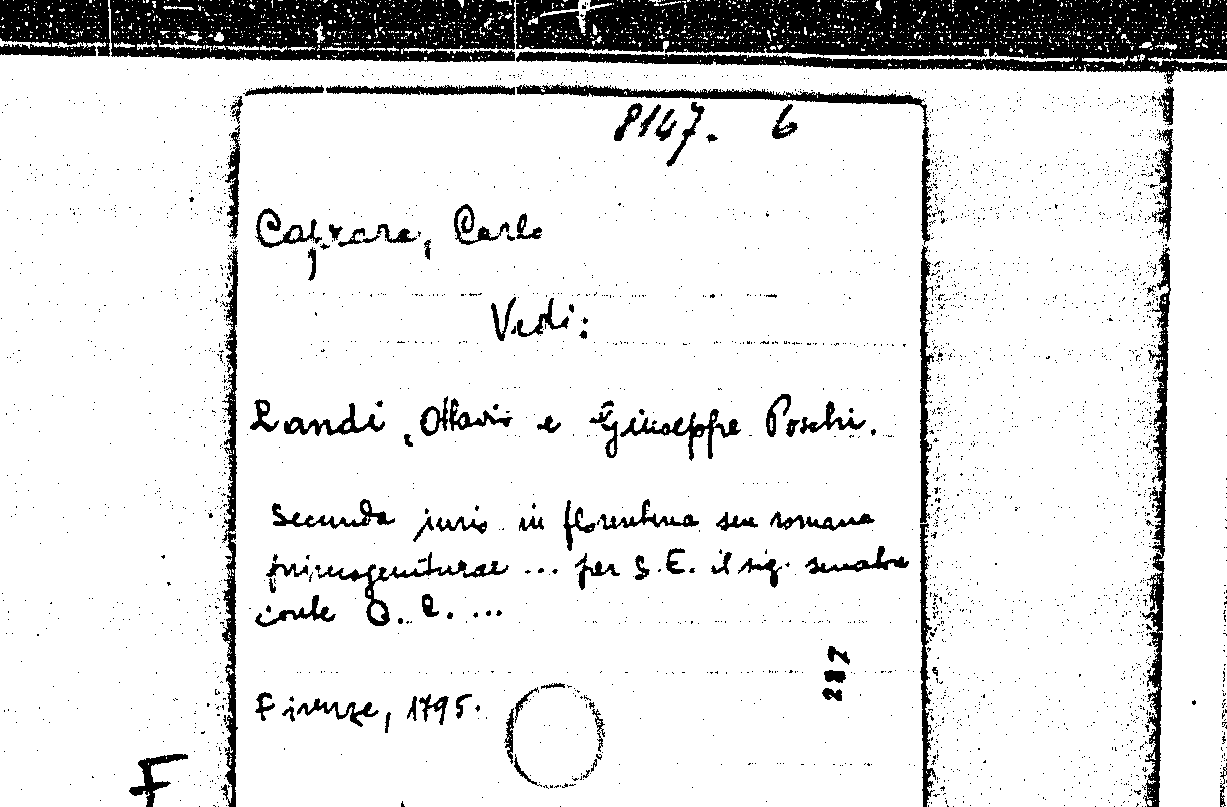 8147. 6
Caprara, Carlo
Vedi:
Landi, Ottavio e Giuseppe Poschi.
Secunda juris in florentina seu romana
primogeniturae ... per S.E. il sig. senatore
conte C. C. ...
287
Firenze, 1795.
F